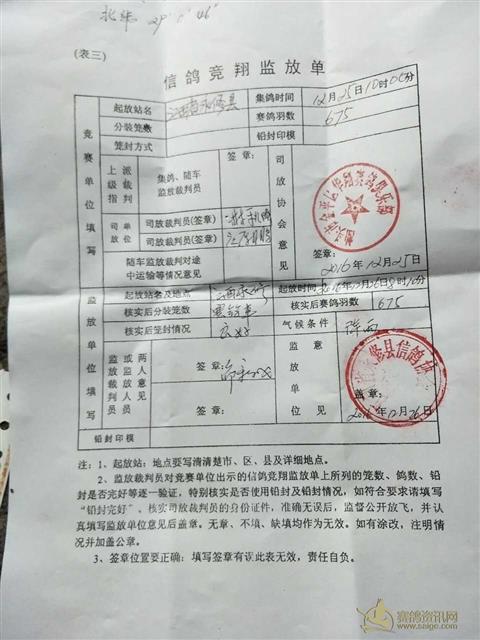 北纬 29° 1′ 46″
(表三)
信鸽竞翔监放单
竞赛单位填写
起放站名
江西省永修县
集鸽时间
12月25日10时00分
分装笼数
赛鸽羽数
675
笼封方式
铅封印模
上级指派裁判
集鸽、随车
监放裁判员
签章:
司放协会意见
司放单位
司放裁判员(签章)
司放裁判员(签章)
随车监放裁判对途
中运输等情况意见
签章:
2016年12月25日
监放单位填写
起放站名及地点
江西永修
起放时间
2016年12月26日
核实后分装笼数
核实后赛鸽羽数
675
核实后笼封情况
良好
气候条件
阵雨
监放裁判员
或监放人员
两人意见
签章:
签章:
监放单位意见
县信鸽协
盖章:
2016年12月26日
铅封印模
注:1、起放站:地点要写清清楚市、区、县及详细地点。
2、监放裁判员对竞赛单位出示的信鸽竞翔监放单上所列的笼数、鸽数、铅
封是否完好等逐一验证,特别核实是否使用铅封及铅封情况,如符合要求请填写
“铅封完好”、核实司放裁判员的身份证件,准确无误后,监督公开放飞,并认
真填写监放单位意见后盖章。无章、不填、缺填均作为无效。如有涂改,注明情
况并加盖公章。
3、签章位置要正确:填写签章有误此表无效,责任自负。
赛鸽资讯网
www.saige.com